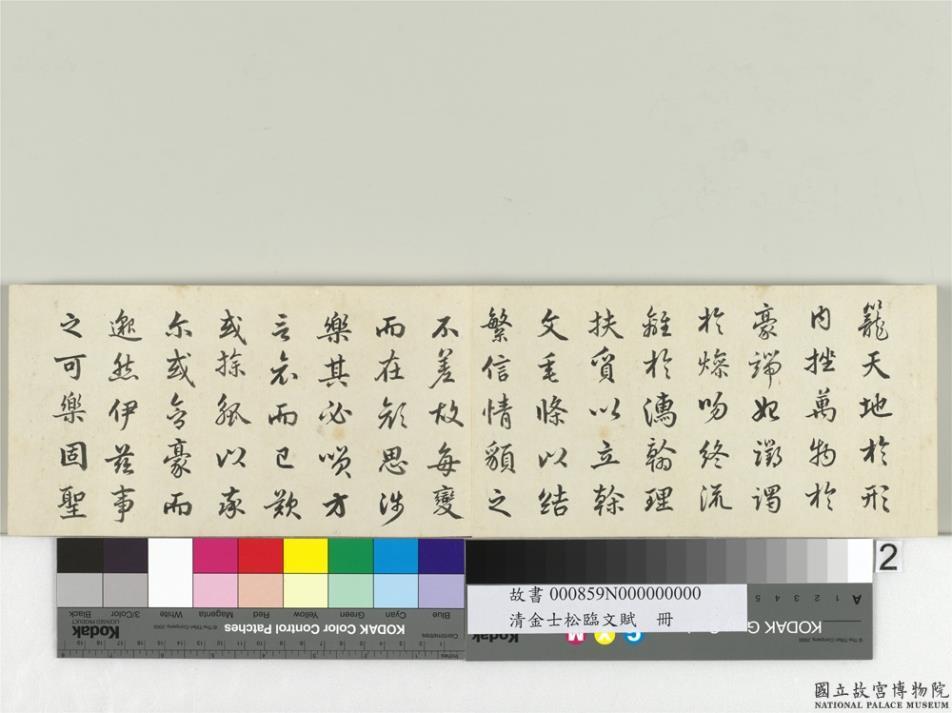 籠天地於形
内挫萬物於
豪端始躑躅
於燥吻終流
離於濡翰理
扶質以立榦
文垂條以結
繁信情䫉之
不差故每變
而在顔思涉
樂其必唉方
言哀而已歎
或操觚以率
尔或含豪而
邈然伊茲事
之可樂固聖
2
Blue Cyan Green Yellow Red Magenta White 3/Color Black
KODAK Color Control Patches
Kodak
LICENSED PRODUCT
© The Tiffen Company, 2000
Centimetres
Inches
A 1 2 3 4 5
KODAK G
C Y M
故書 000859N000000000
清金士松臨文賦 冊
國立故宮博物院
NATIONAL PALACE MUSEUM